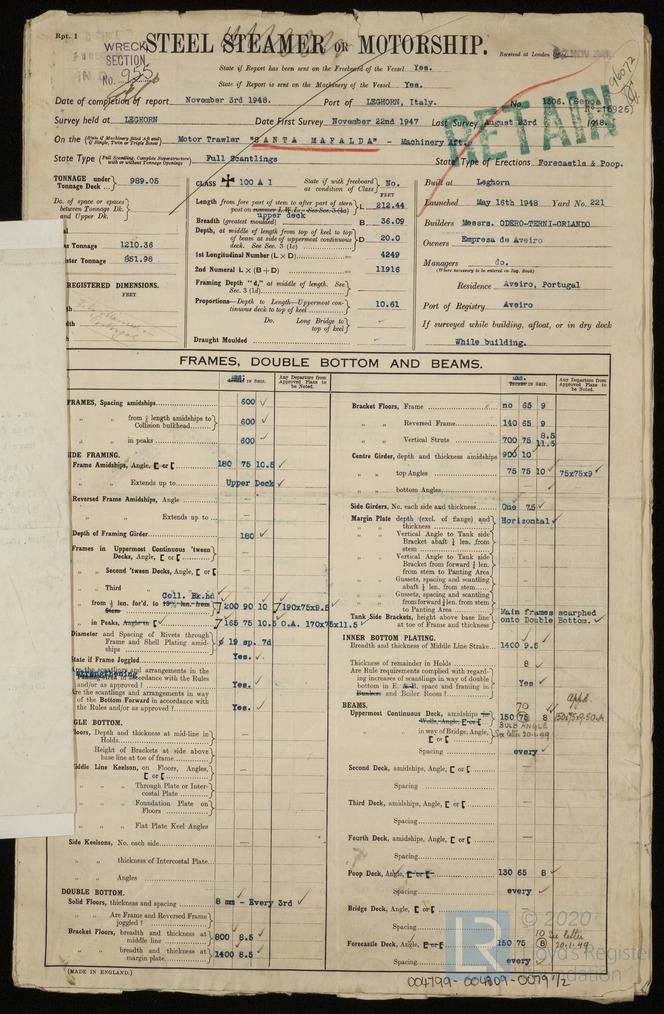 Rpt. 1
WRECK
SECTION
No. 955
STEEL STEAMER OR MOTORSHIP.
Received at London
State if Report has been sent on the Freeboard of the Vessel Yes.
State if Report is sent on the Machinery of the Vessel Yes.
RETAIN
Date of completion of report November 3rd 1948. Port of LEGHORN, Italy. No. 1306. (Genoa
No-16926)
Survey held at LEGHORN Date First Survey November 22nd 1947 Last Survey August 23rd 1948.
On the (State if Machinery fitted Aft and if Single, Twin or Triple Screw) Motor Trawler "SANTA MAFALDA" - Machinery Aft.
State Type (Full Scantling, Complete Superstructure with or without Tonnage Openings) Full Scantlings State Type of Erections Forecastle & Poop.
TONNAGE under Tonnage Deck ... 989.05
Do. of space or spaces between Tonnage Dk. and Upper Dk.
ss Tonnage 1210.36
ister Tonnage 851.98
REGISTERED DIMENSIONS.
FEET
CLASS ✠ 100 A 1 State if with freeboard as condition of Class No.
FEET
Length from fore part of stem to after part of stern post on upper deck L 212.44
Breadth (greatest moulded) B 36.09
Depth, at middle of length from top of keel to top of beam at side of uppermost continuous deck. See Sec. 3 (1c) D 20.0
1st Longitudinal Number (L × D) 4249
2nd Numeral L × (B + D) 11916
Framing Depth "d," at middle of length. See Sec. 3 (1d)
Proportions—Depth to Length—Uppermost continuous deck to top of keel 10.61
Do. Long Bridge to top of keel
Draught Moulded
Built at Leghorn
Launched May 16th 1948 Yard No. 221
Builders Messrs. ODERO-TERNI-ORLANDO
Owners Empresa de Aveiro
Managers do.
(Where necessary to be entered in Reg. Book)
Residence Aveiro, Portugal
Port of Registry Aveiro
If surveyed while building, afloat, or in dry dock
While building.
FRAMES, DOUBLE BOTTOM AND BEAMS.
IN SHIP. Any Departure from Approved Plans to be Noted.
IN SHIP. Any Departure from Approved Plans to be Noted.
FRAMES, Spacing amidships 600 ✓
" " from ⅗ length amidships to Collision bulkhead 600 ✓
" " in peaks 600 ✓
SIDE FRAMING.
Frame Amidships, Angle, [ or [ 180 75 10.5 ✓
" " Extends up to Upper Deck ✓
Reversed Frame Amidships, Angle —
" " Extends up to —
Depth of Framing Girder 180 ✓
Frames in Uppermost Continuous 'tween Decks, Angle, [ or [ —
" Second 'tween Decks, Angle, [ or [ —
" Third " " " "
" from ⅗ len. for'd. to Coll. Bk.hd 200 90 10 ✓ 190x75x9.5 ✓
" in Peaks, 165 75 10.5 O.A. 170x75x11.5 ✓
Diameter and Spacing of Rivets through Frame and Shell Plating amidships ø 19 sp. 7d
State if Frame Joggled Yes. ✓
Are the scantlings and arrangements in the strengthening in accordance with the Rules and/or as approved? Yes. ✓
Are the scantlings and arrangements in way of the Bottom Forward in accordance with the Rules and/or as approved? Yes. ✓
GLE BOTTOM.
loors, Depth and thickness at mid-line in Holds —
Height of Brackets at side above base line at toe of frame
iddle Line Keelson, on Floors, Angles, [ or [ —
" " Through Plate or Intercostal Plate
" " Foundation Plate on Floors
" " Flat Plate Keel Angles
Side Keelsons, No. each side
" " thickness of Intercostal Plate
" " Angles
DOUBLE BOTTOM.
Solid Floors, thickness and spacing 8 mm - Every 3rd ✓
" " Are Frame and Reversed Frame joggled?
Bracket Floors, breadth and thickness at middle line 800 8.5 ✓
" " breadth and thickness at margin plate 1400 8.5 ✓
Bracket Floors, Frame no 65 9
" " Reversed Frame 140 65 9
" " Vertical Struts 700 75 8.5 11.5
Centre Girder, depth and thickness amidships 900 10 ✓
" " top Angles 75 75 10 ✓ 75x75x9 ✓
" " bottom Angles
Side Girders, No. each side and thickness One 7.5 ✓
Margin Plate depth (excl. of flange) and thickness Horizontal ✓
" " Vertical Angle to Tank side Bracket abaft ⅗ len. from stem —
" " Vertical Angle to Tank side Bracket from forward ⅗ len. from stem to Panting Area —
" " Gussets, spacing and scantling abaft ⅗ len. from stem —
" " Gussets, spacing and scantling from forward ⅗ len. from stem to Panting Area —
Tank Side Brackets, height above base line at toe of Frame and thickness Main frames scarphed onto Double Bottom. ✓
INNER BOTTOM PLATING.
Breadth and thickness of Middle Line Strake 1400 9.5 ✓
Thickness of remainder in Holds 8 ✓
Are Rule requirements complied with regarding increases of scantlings in way of double bottom in E. & B. space and framing in Bunkers and Boiler Room? Yes ✓
BEAMS.
Uppermost Continuous Deck, amidships 150 75 8
BULB ANGLE
See letter 20-1-49
" " in way of Bridge, Angle, [ or [
Spacing every ✓
Second Deck, amidships, Angle, [ or [
Spacing
Third Deck, amidships, Angle, [ or [
Spacing
Fourth Deck, amidships, Angle, [ or [
Spacing
Poop Deck, Angle, [ or [ 130 65 8 ✓
Spacing every ✓
Bridge Deck, Angle, [ or [
Spacing
Forecastle Deck, Angle, [ or [ 150 75 8 10 See letter 20-1-49
Spacing every ✓
(MADE IN ENGLAND.)
004799-004809-0079 1/2
LR © 2020
Lloyd's Register
Foundation